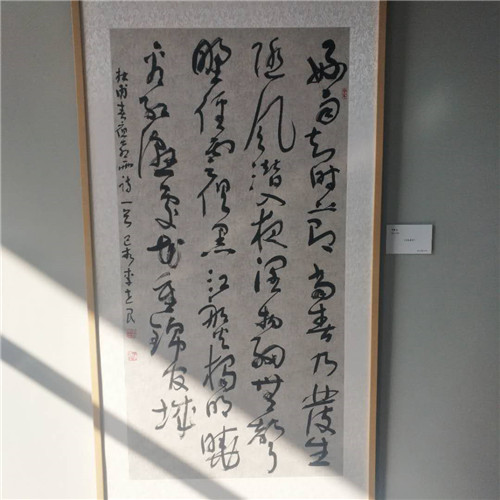 好雨知时節當春乃發生
随风潜入夜润物细無聲
野径雲俱黑江船火獨明曉
看红湿處花重锦官城
杜甫春夜喜雨诗一首己亥李